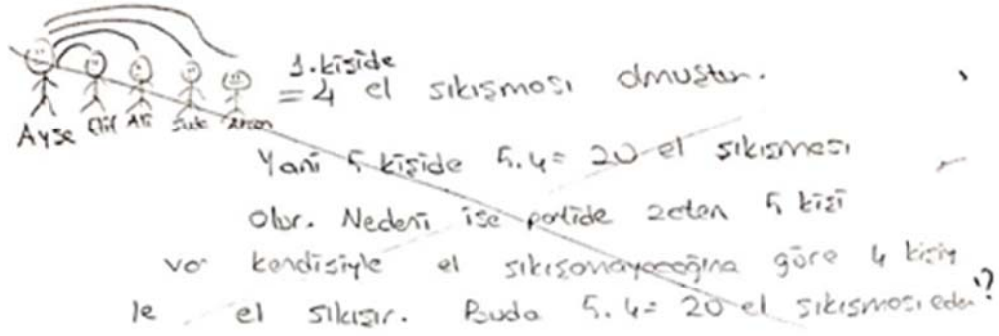 1. kişide
= 4 el sıkışması olmuştur.
Ayşe Elif Ali
Yani 5 kişide 5.4= 20 el sıkışması
Olur. Nedeni ise partide zaten 5 kişi
var kendisiyle el sıkışamayacağına göre 4 kişiy
le el sıkışır. Buda 5.4= 20 el sıkışması eder?